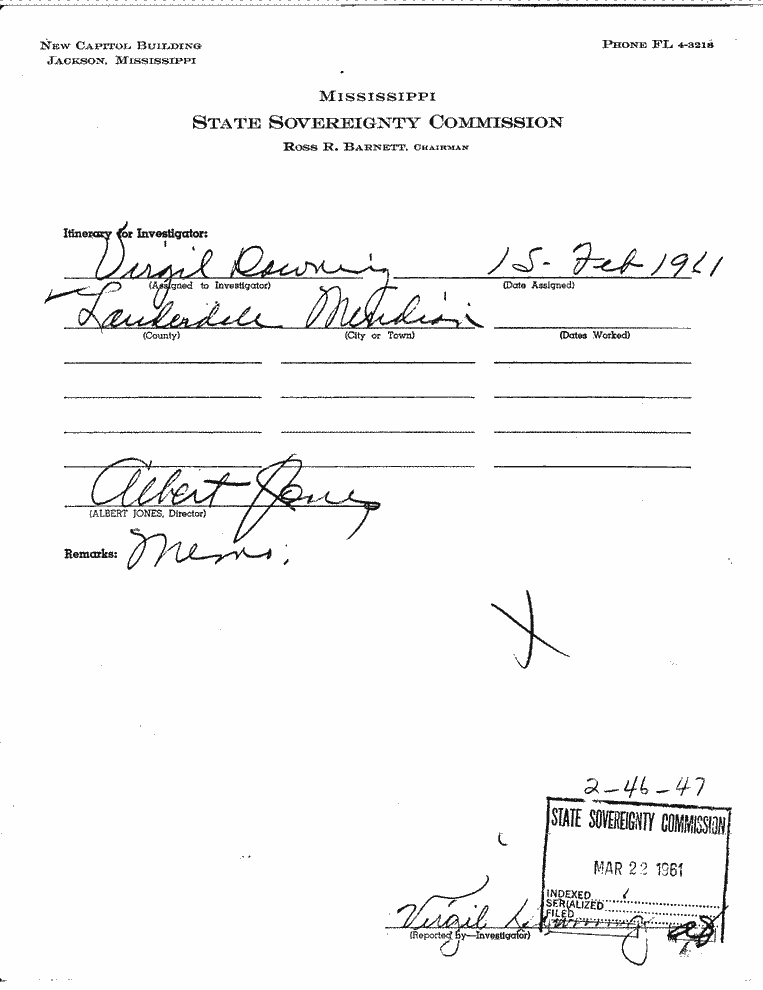 NEW CAPITOL BUILDING
JACKSON, MISSISSIPPI
PHONE FL 4-3218
MISSISSIPPI
STATE SOVEREIGNTY COMMISSION
ROSS R. BARNETT, CHAIRMAN
Itinerary for Investigator:
Virgil Downing 15- Feb 1961
(Assigned to Investigator) (Date Assigned)
Lauderdale Meridian
(County) (City or Town) (Dates Worked)
Albert Jones
(ALBERT JONES, Director)
Remarks: Memo.
2-46-47
STATE SOVEREIGNTY COMMISSION
MAR 22 1961
INDEXED
SERIALIZED
FILED
Virgil Downing
(Reported by—Investigator)